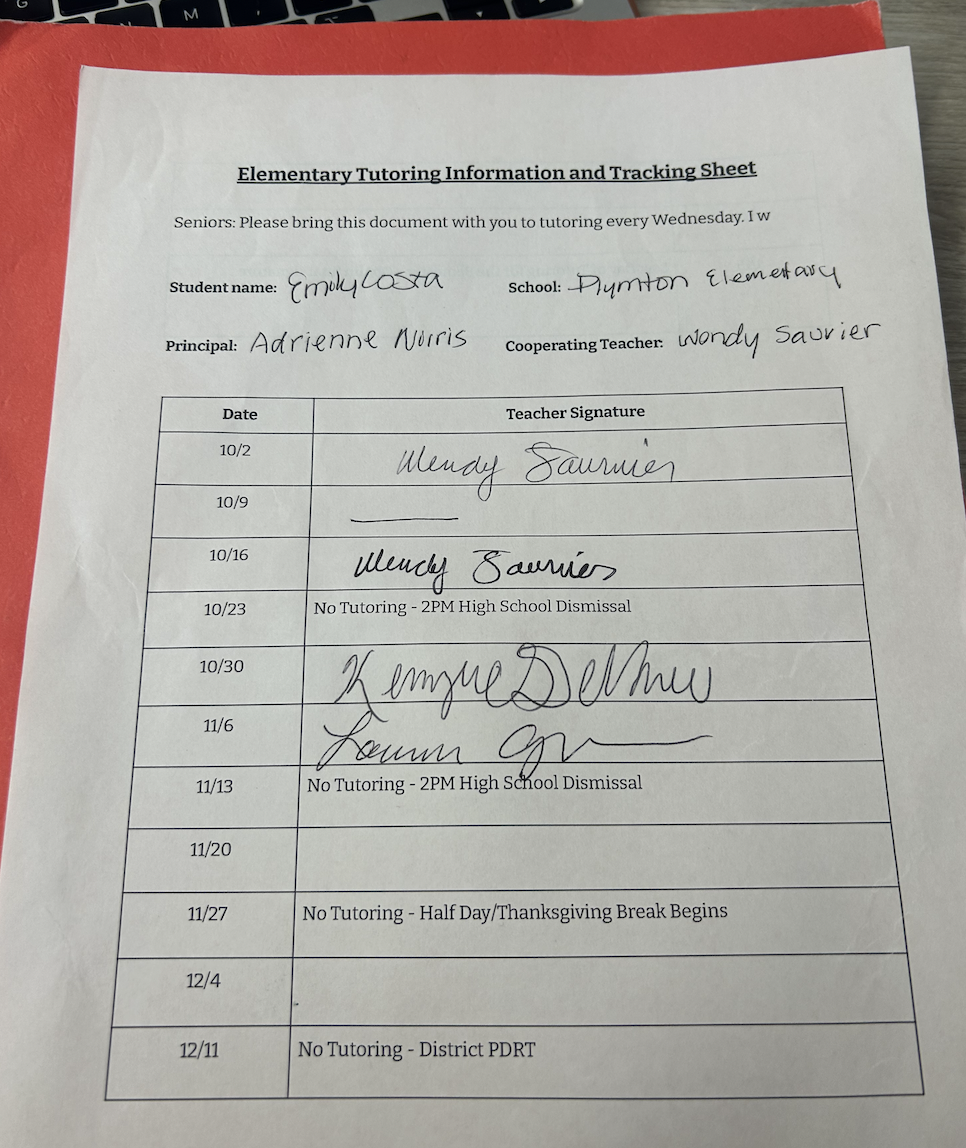 G
M
Elementary Tutoring Information and Tracking Sheet
Seniors: Please bring this document with you to tutoring every Wednesday. I w
Student name: Emily Costa School: Plymton Elemetary
Principal: Adrienne Norris Cooperating Teacher: Wondy Saurier
Date Teacher Signature
10/2 Wendy Saurnier
10/9
10/16 Wendy Saurnier
10/23 No Tutoring - 2PM High School Dismissal
10/30
11/6 Lauren
11/13 No Tutoring - 2PM High School Dismissal
11/20
11/27 No Tutoring - Half Day/Thanksgiving Break Begins
12/4
12/11 No Tutoring - District PDRT